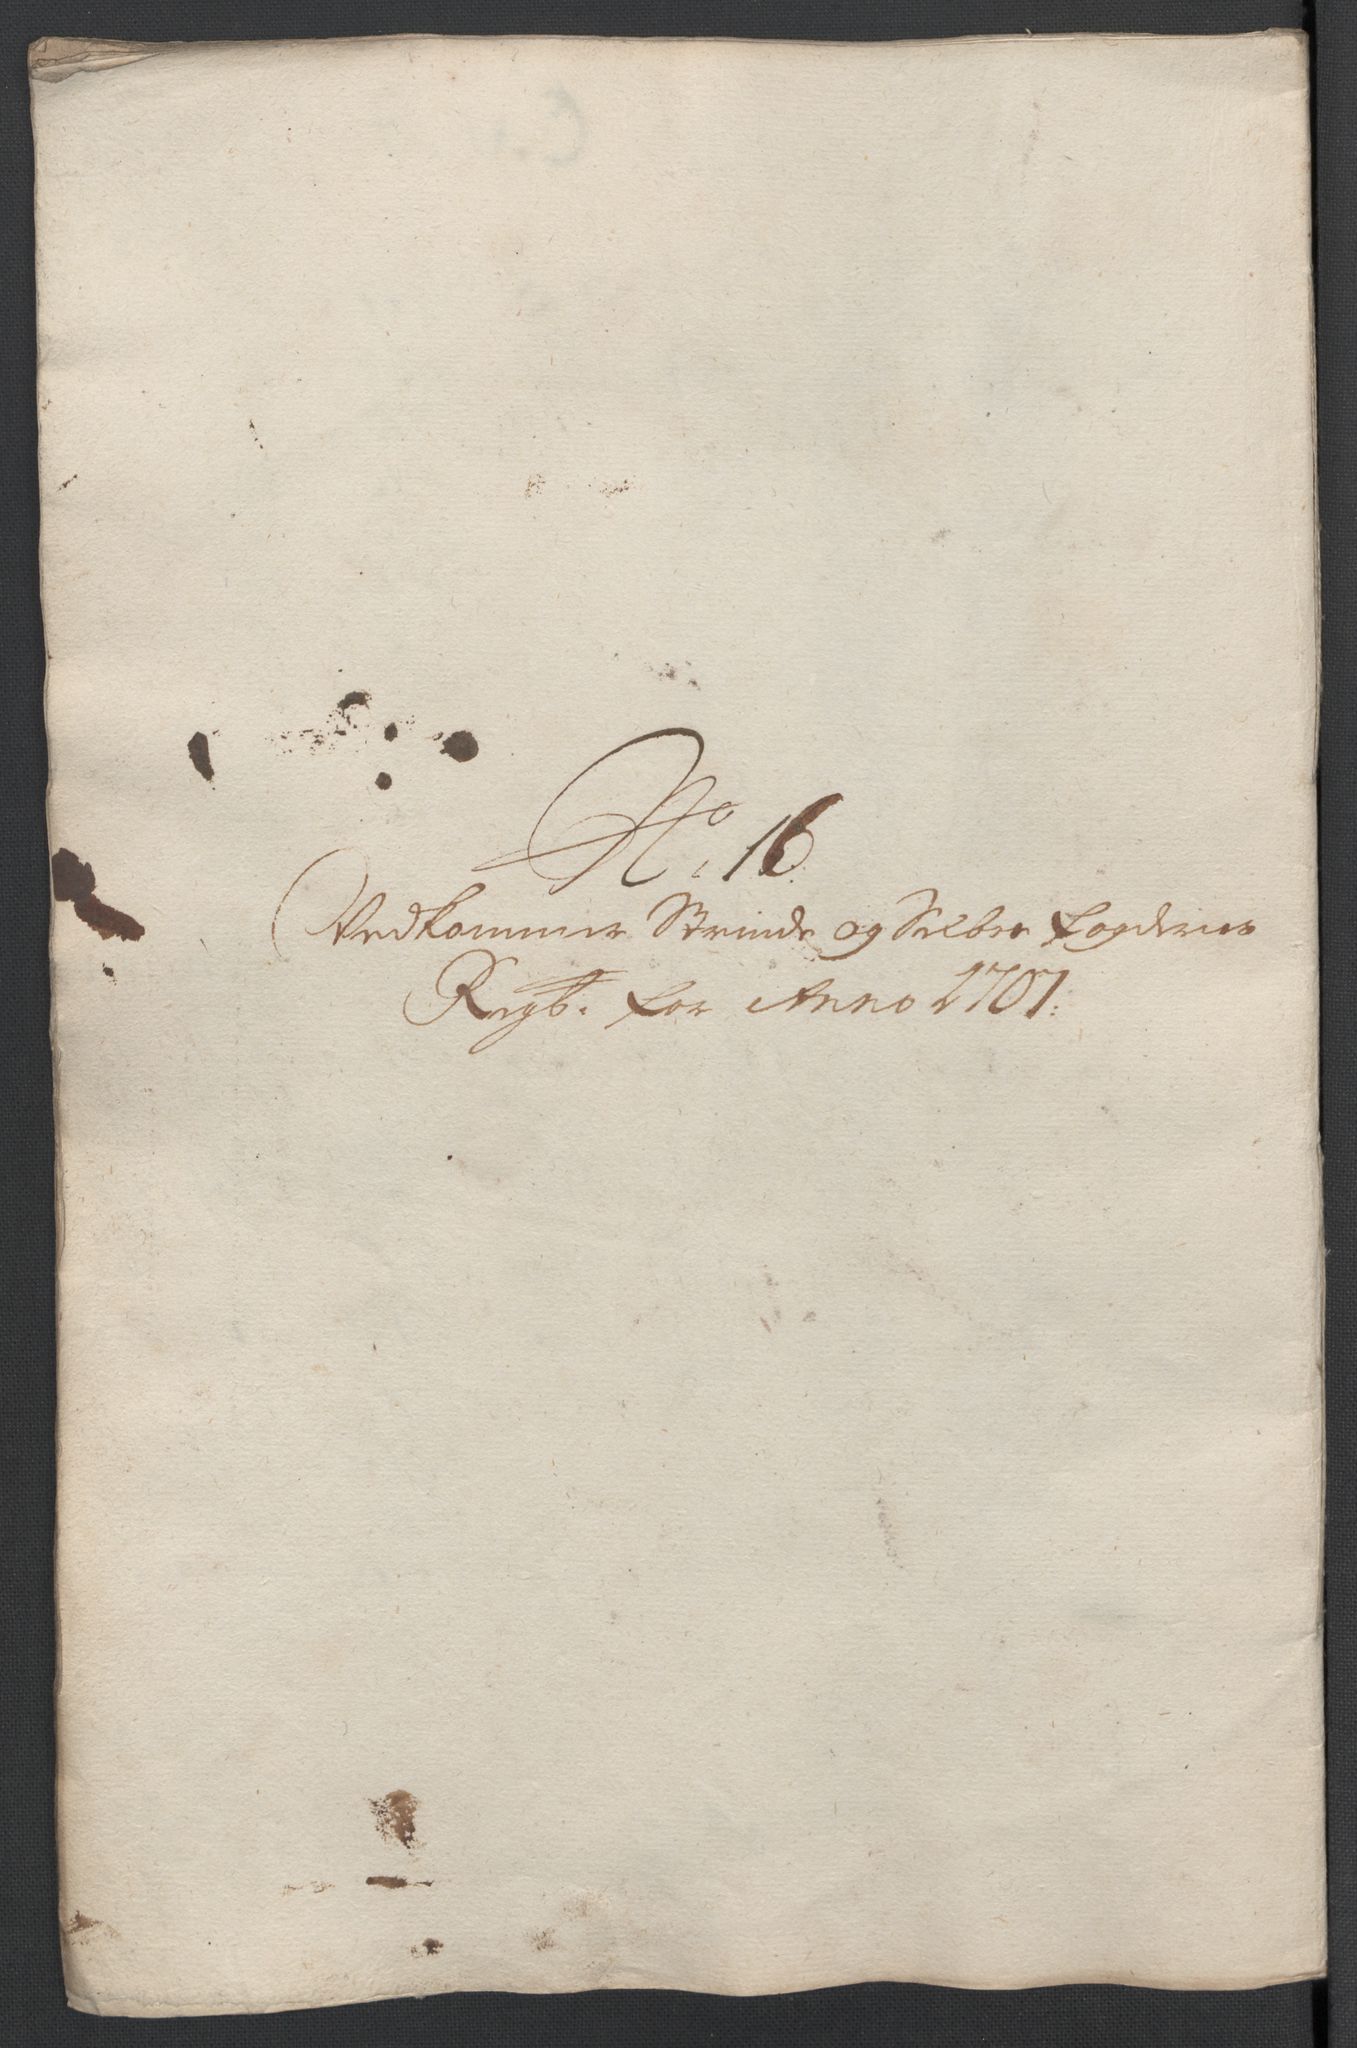 No. 16
Vedkommer Strinde og Selboe fogderies
Regb. for Anno 1707.